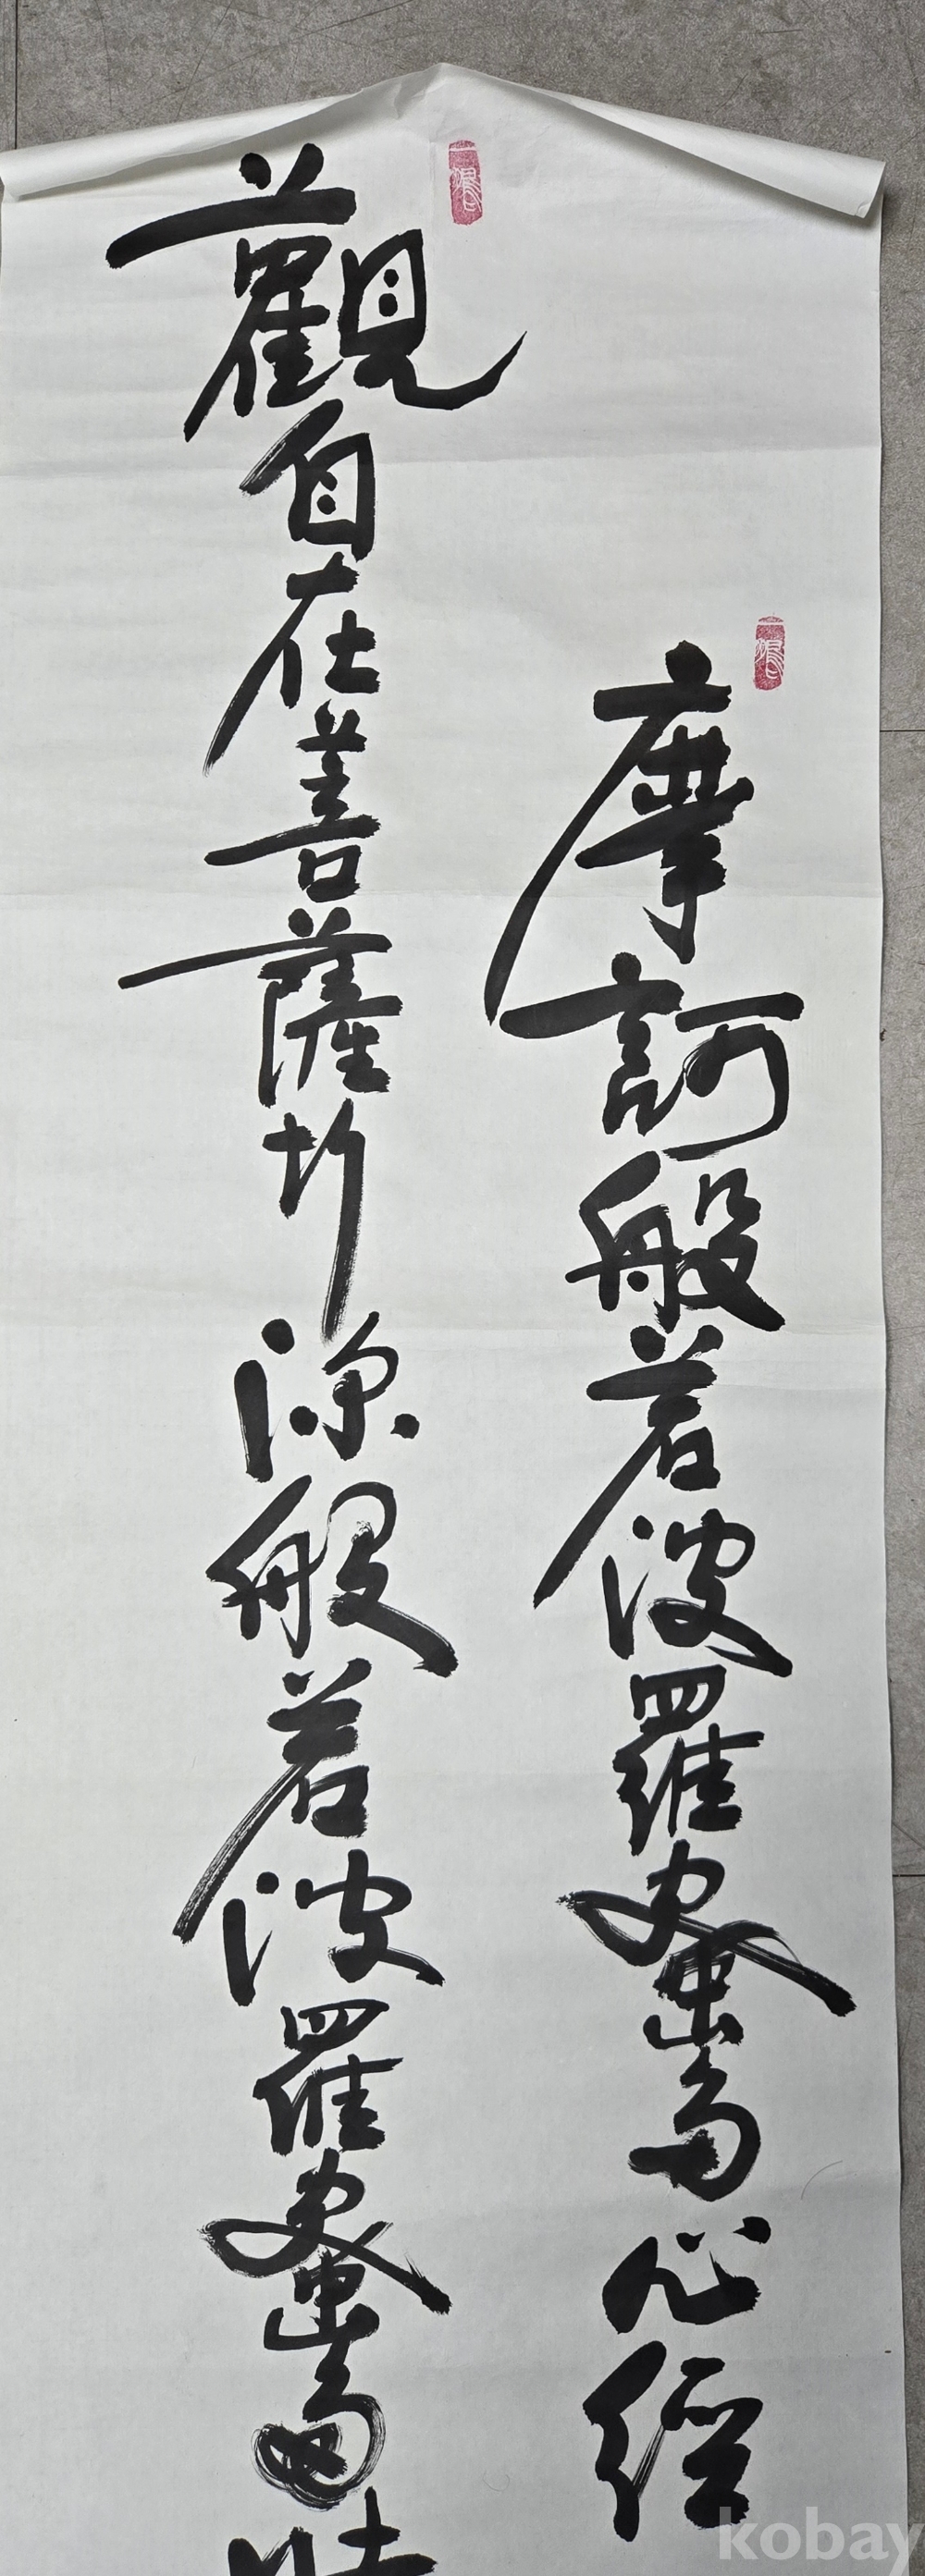 摩訶般若波羅蜜多心經
觀自在菩薩行深般若波羅蜜多
kobay